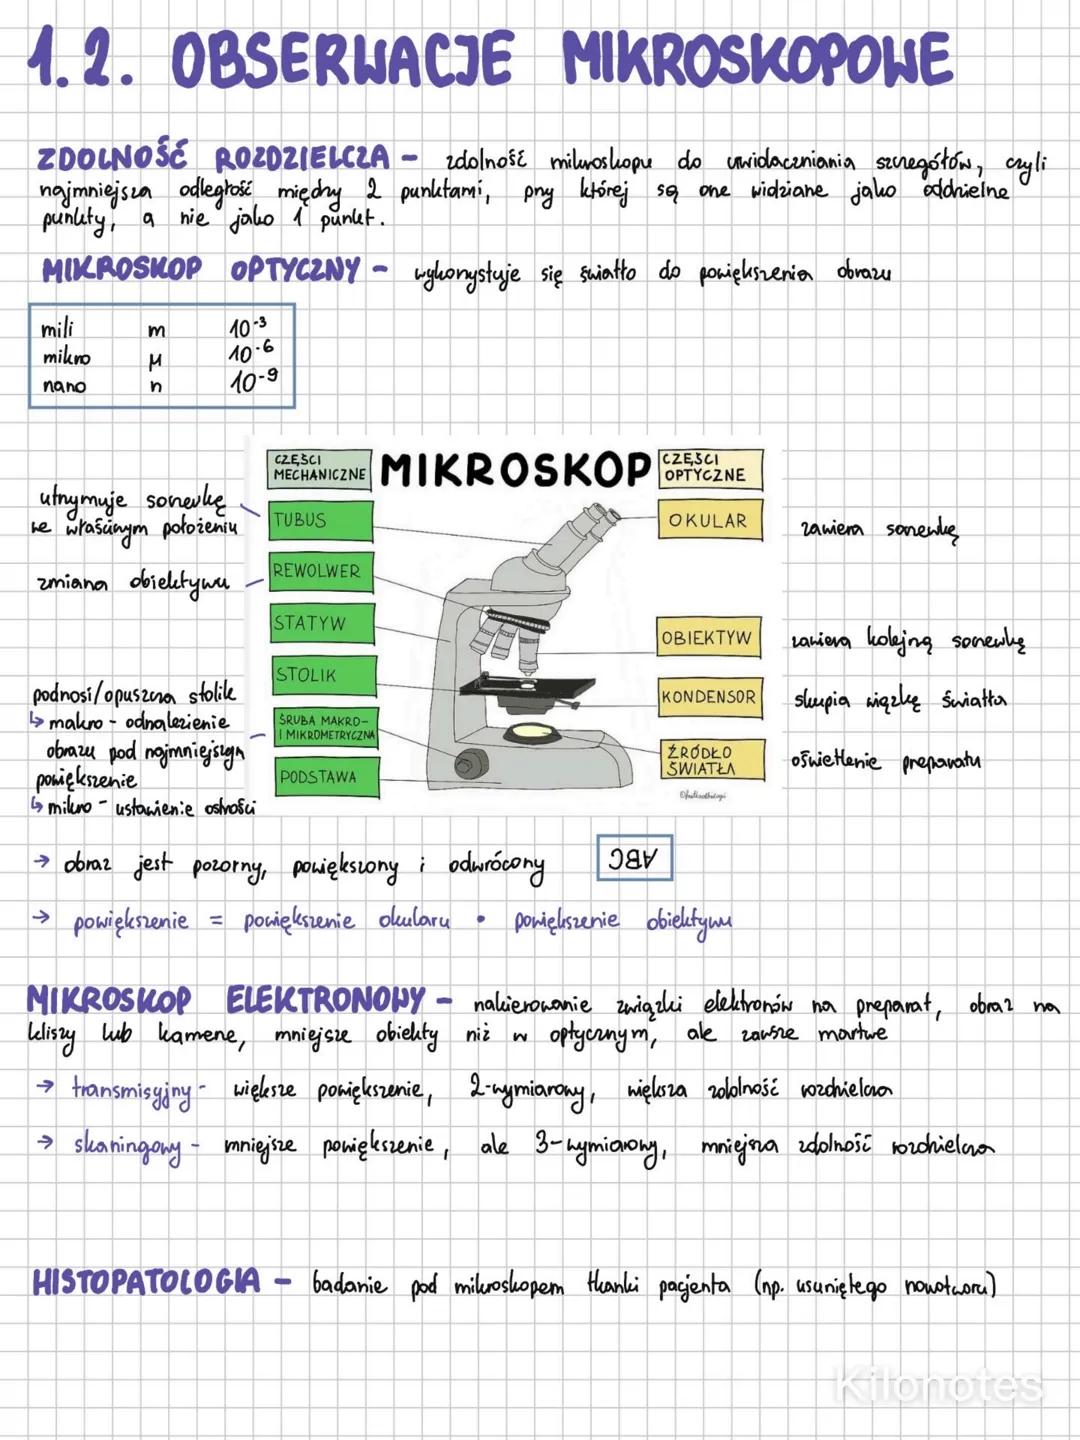 1.2. OBSERWACJE MIKROSKOPOWE
ZDOLNOŚĆ ROZDZIELCZA – zdolność mikroskopu do uwidaczniania szczegółów, czyli
najmniejsza odległość między 2 punktami, przy której są one widziane jako oddzielne
punkty, a nie jako 1 punkt.
MIKROSKOP OPTYCZNY – wykorzystuje się światło do powiększenia obrazu
mili m 10⁻³
mikro μ 10⁻⁶
nano n 10⁻⁹
CZĘŚCI
MECHANICZNE
MIKROSKOP
CZĘŚCI
OPTYCZNE
utrzymuje soczewkę
we właściwym położeniu
TUBUS
OKULAR
zawiera soczewkę
zmiana obiektywu
REWOLWER
STATYW
OBIEKTYW
zawiera kolejną soczewkę
STOLIK
KONDENSOR
skupia wiązkę światła
podnosi/opuszcza stolik
↳ makro - odnalezienie
obrazu pod najmniejszym
powiększenie
↳ mikro - ustawienie ostrości
ŚRUBA MAKRO-
I MIKROMETRYCZNA
PODSTAWA
ŹRÓDŁO
ŚWIATŁA
oświetlenie preparatu
→ obraz jest pozorny, powiększony i odwrócony
ABC
→ powiększenie = powiększenie okularu • powiększenie obiektywu
MIKROSKOP ELEKTRONOWY – nakierowanie związki elektronów na preparat, obraz na
kliszy lub kamerze, mniejsze obiekty niż w optycznym, ale zawsze martwe
→ transmisyjny - większe powiększenie, 2-wymiarowy, większa zdolność rozdzielcza
→ skaningowy - mniejsze powiększenie, ale 3-wymiarowy, mniejsza zdolność rozdzielcza
HISTOPATOLOGIA – badanie pod mikroskopem tkanki pacjenta (np. usuniętego nowotworu)
Kilonotes